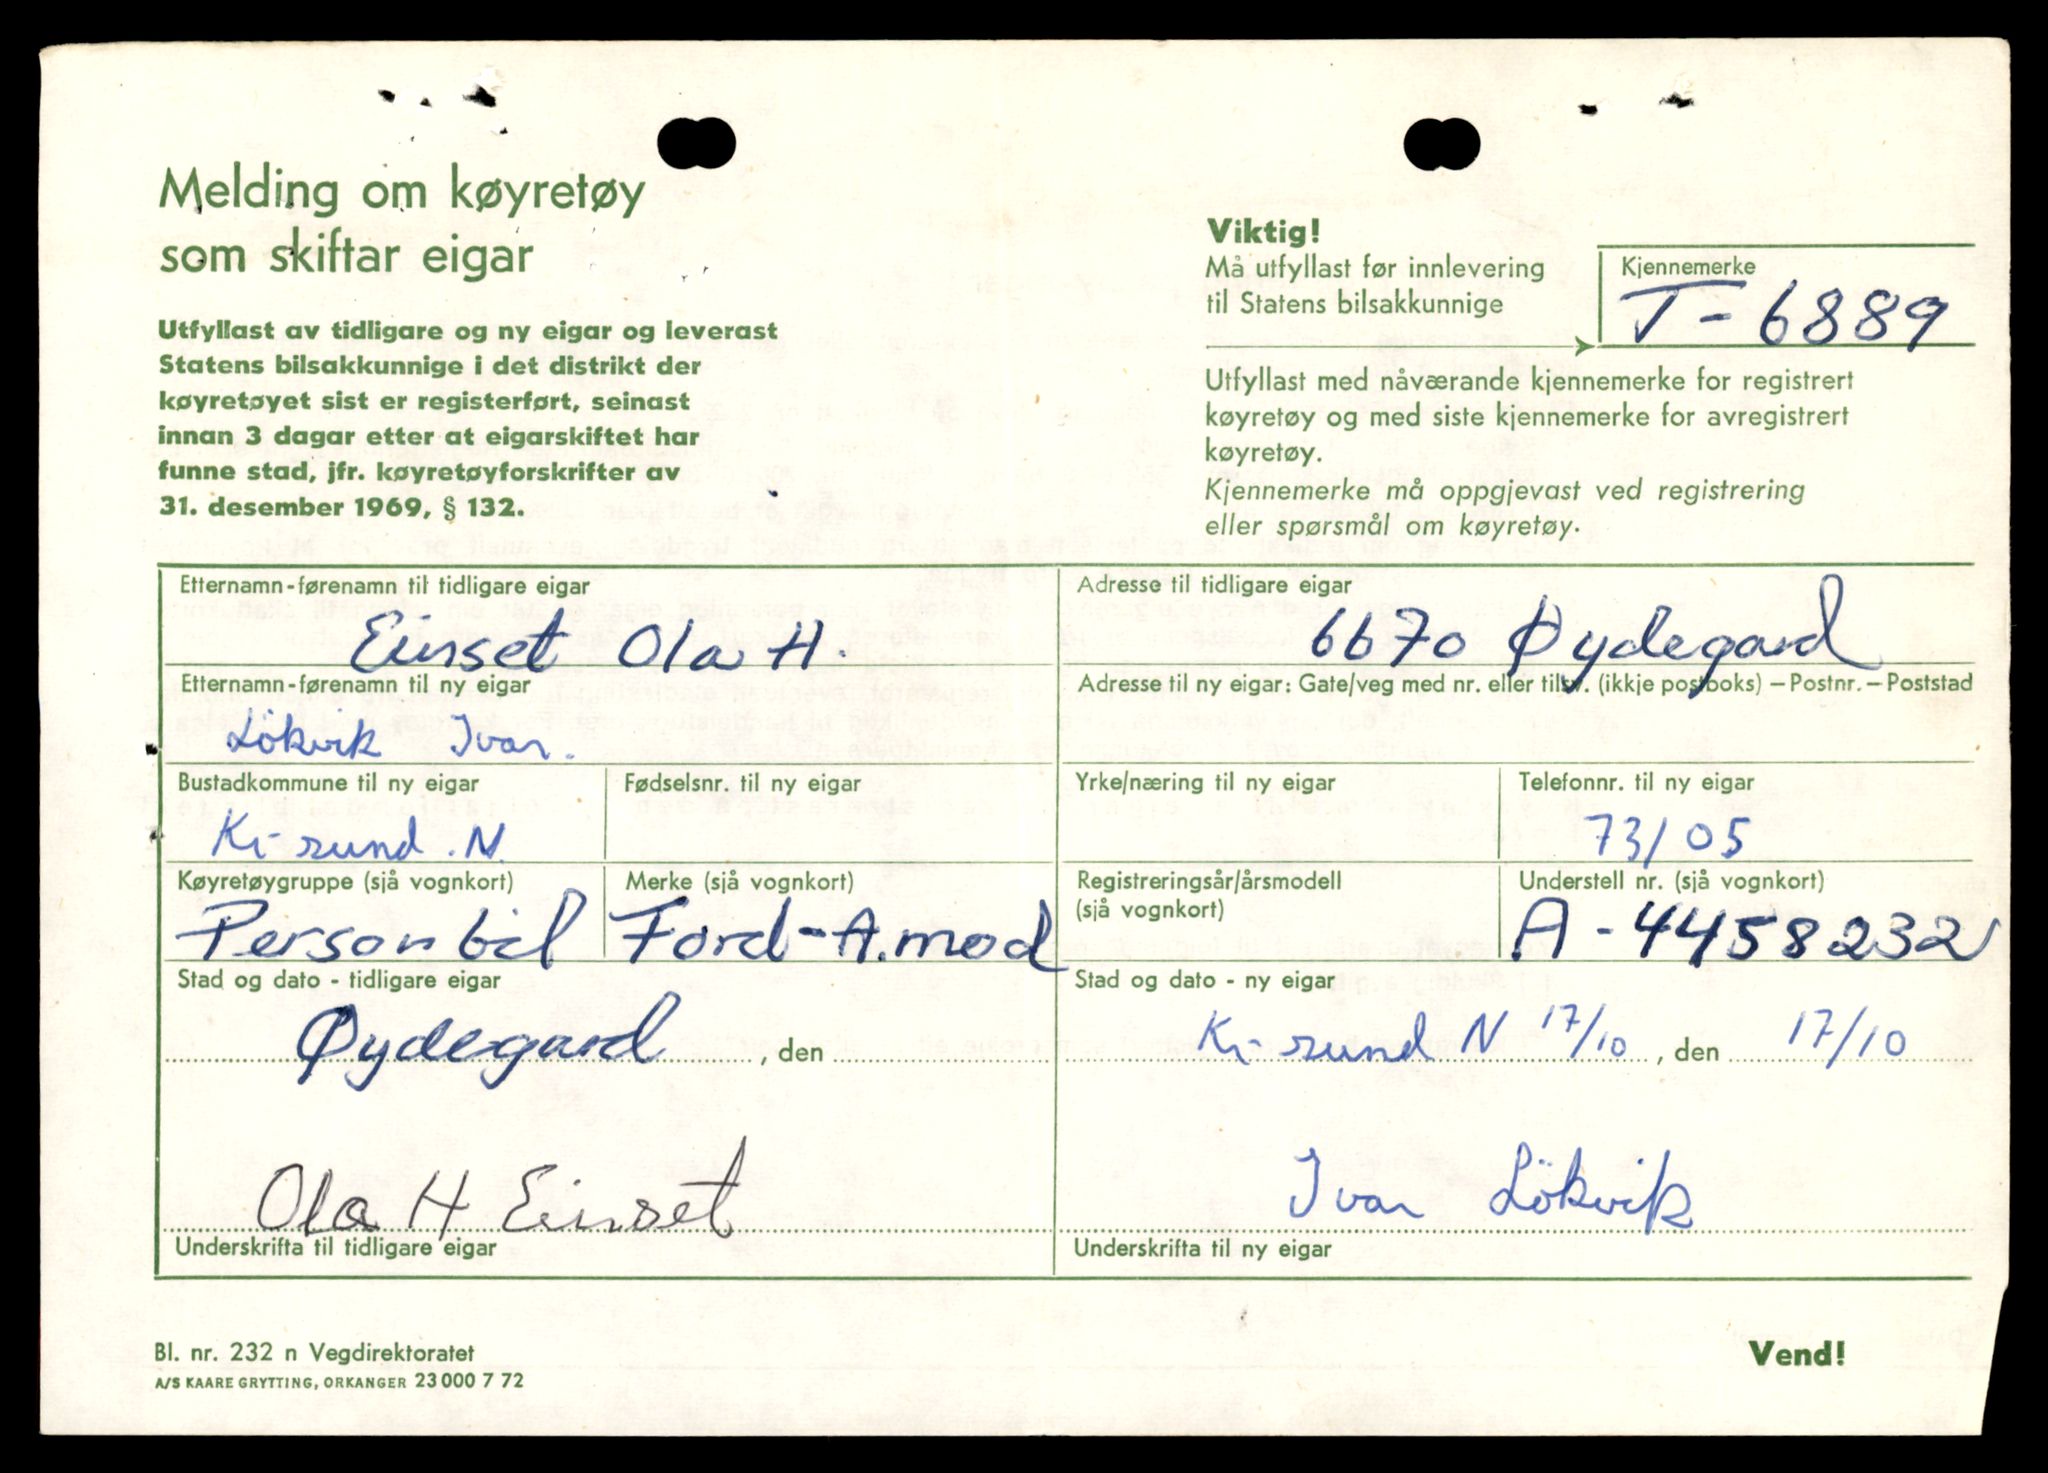 Melding om køyretøy
som skiftar eigar
Utfyllast av tidligare og ny eigar og leverast
Statens bilsakkunnige i det distrikt der
køyretøyet sist er registerført, seinast
innan 3 dagar etter at eigarskiftet har
funne stad, jfr. køyretøyforskrifter av
31. desember 1969, § 132.
Viktig!
Må utfyllast før innlevering
til Statens bilsakkunnige
Kjennemerke
T-6889
Utfyllast med nåværande kjennemerke for registrert
køyretøy og med siste kjennemerke for avregistrert
køyretøy.
Kjennemerke må oppgjevast ved registrering
eller spørsmål om køyretøy.
Etternamn-førenamn til tidligare eigar
Einset Ola H.
Adresse til tidligare eigar
6670 Øydegard
Etternamn-førenamn til ny eigar
Lökvik Ivar.
Adresse til ny eigar: Gate/veg med nr. eller tilsv. (ikkje postboks) – Postnr. – Poststad
Bustadkommune til ny eigar
Kr-sund. N.
Fødselsnr. til ny eigar
Yrke/næring til ny eigar
Telefonnr. til ny eigar
73105
Køyretøygruppe (sjå vognkort)
Personbil
Merke (sjå vognkort)
Ford-A.mod
Registreringsår/årsmodell
(sjå vognkort)
Understell nr. (sjå vognkort)
A-4458232
Stad og dato - tidligare eigar
Øydegard , den
Stad og dato - ny eigar
Kr-sund N 17/10 , den 17/10
Ola H Einset
Underskrifta til tidligare eigar
Ivar Lökvik
Underskrifta til ny eigar
Bl. nr. 232 n Vegdirektoratet
A/S KAARE GRYTTING, ORKANGER 23 000 7 72
Vend!